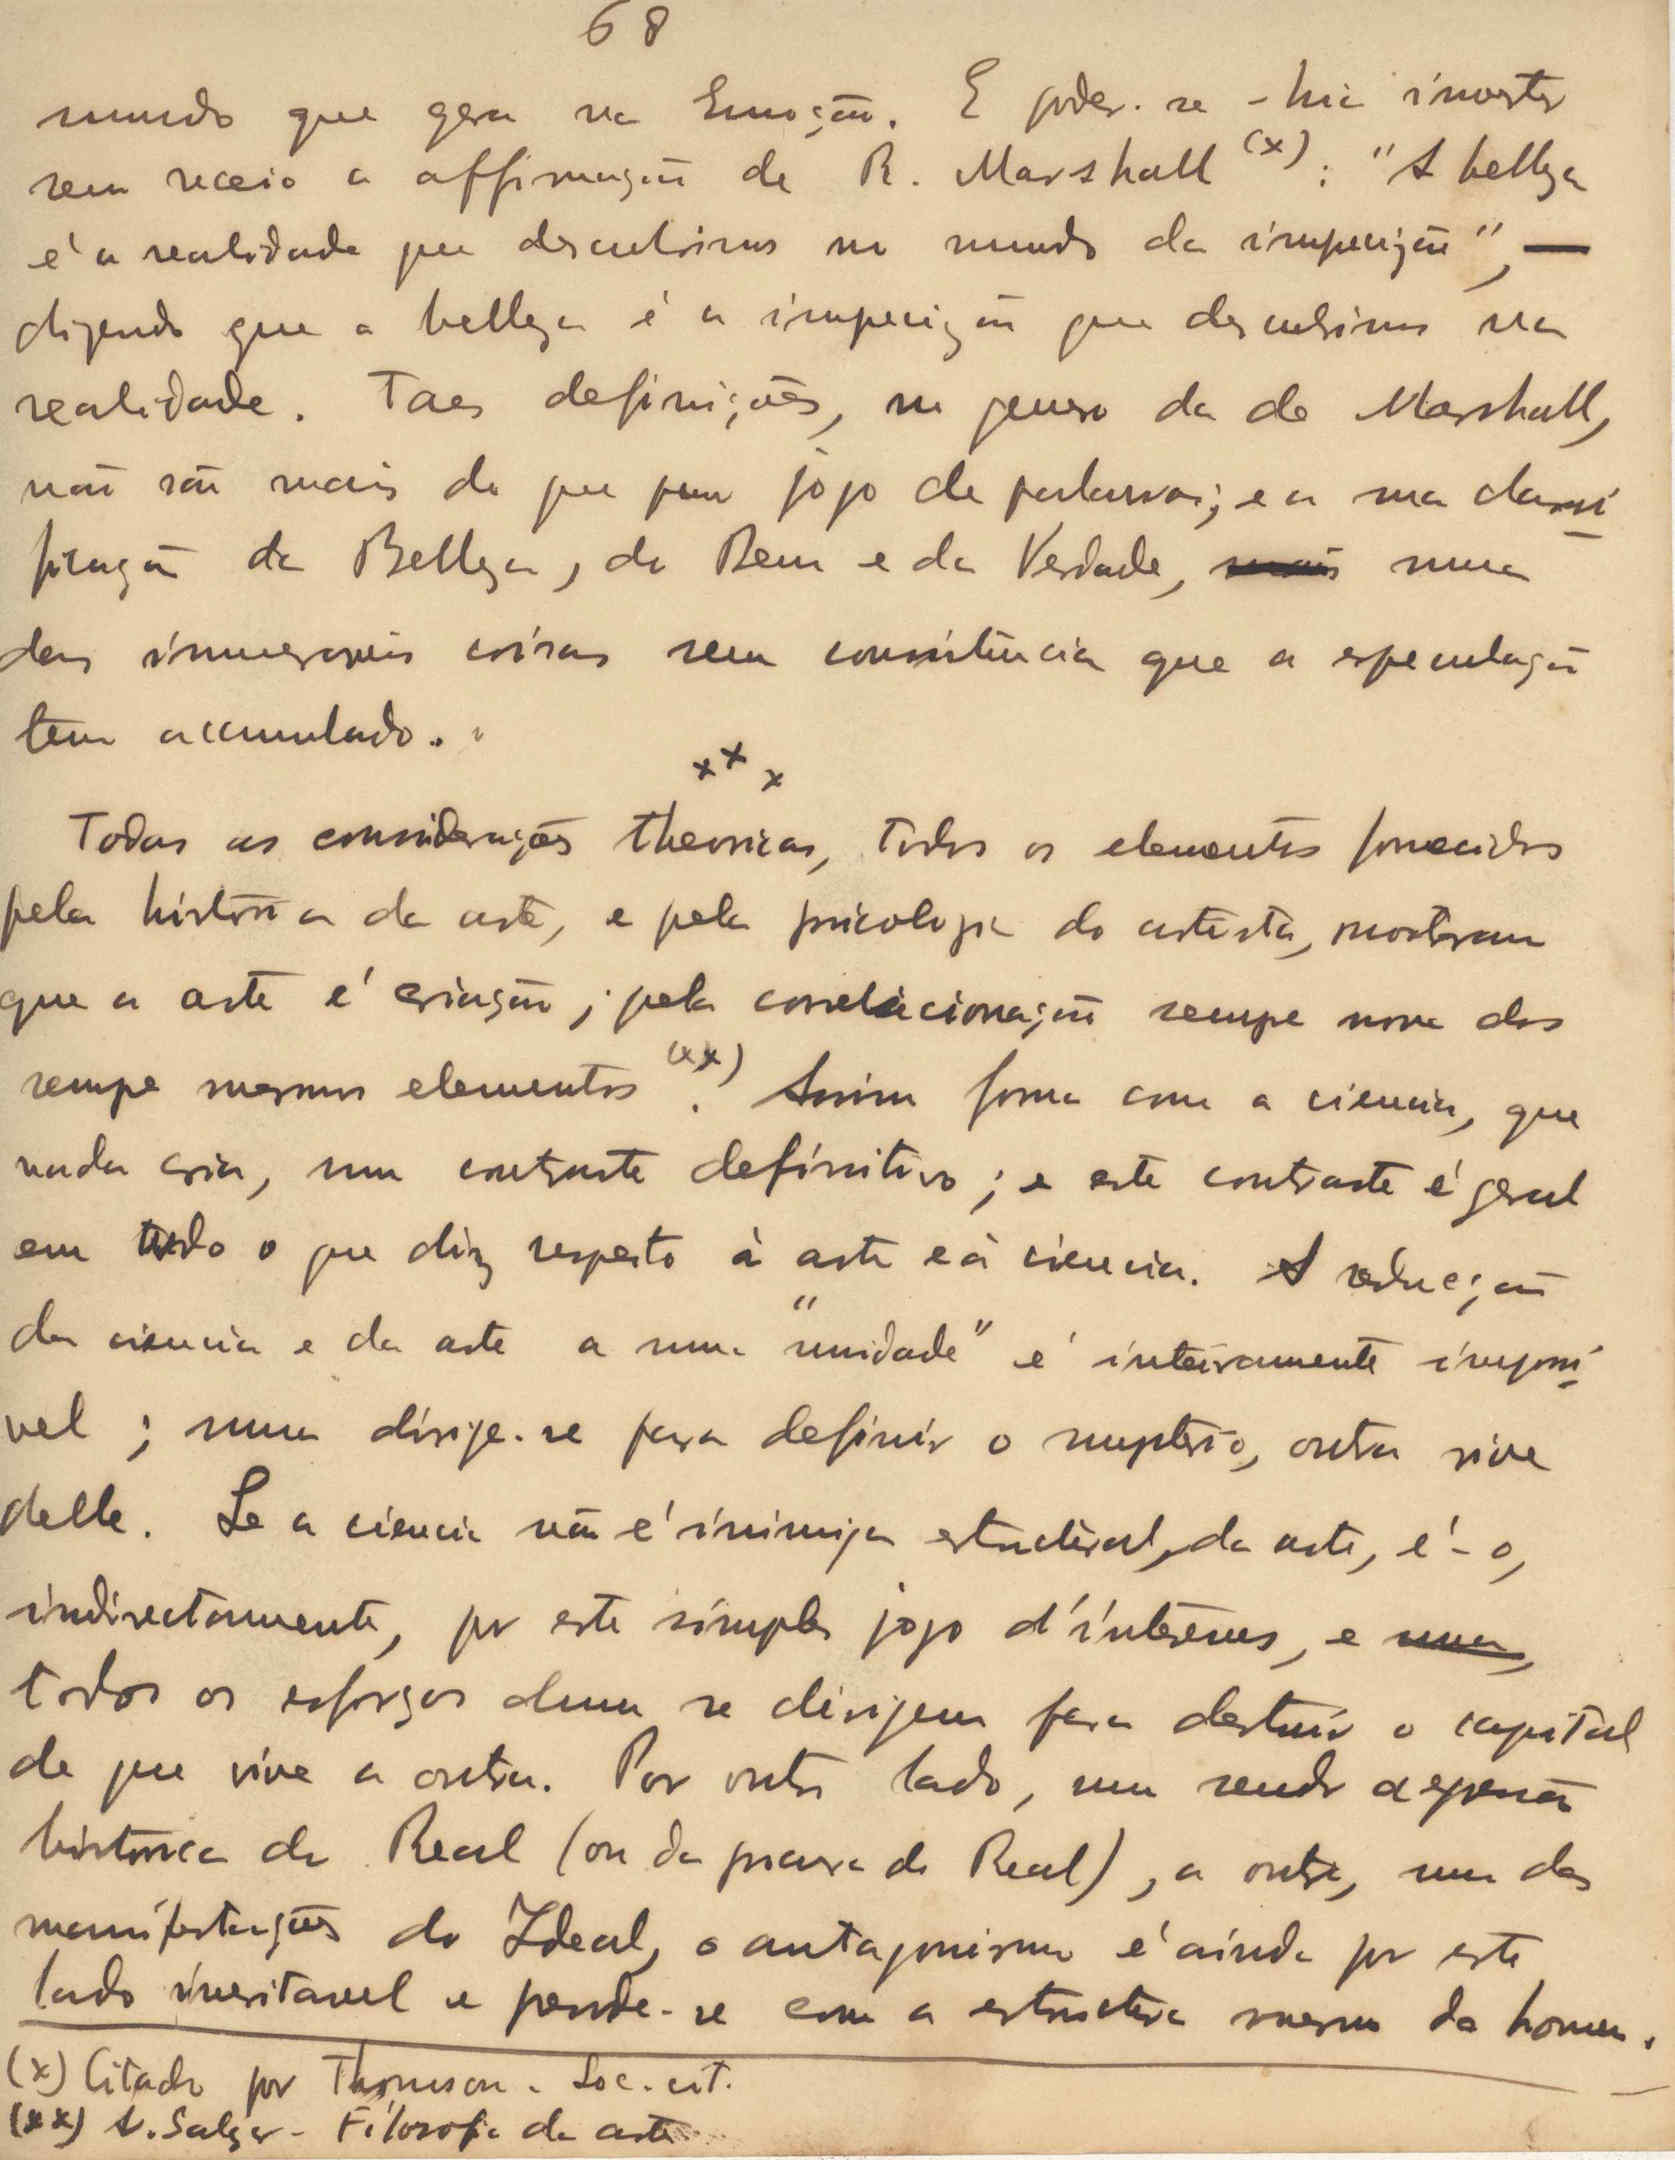 68
mundo que gera na Emoção. E poder-se-hia inverter
sem receio a affirmação de R. Marshall (x): "A belleza
é a realidade que descubrimos no mundo da impressão", —
dizendo que a belleza é a impressão que descubrimos na
realidade. Taes definições, no genero da de Marshall,
não são mais do que puro jogo de palavras; e a sua classi
ficação da Belleza, do Bem e da Verdade, uma
das innumeraveis coisas sem consistência que a especulação
tem accumulado.
x x x
Todas as considerações theoricas, todos os elementos fornecidos
pela história da arte, e pela psicologia do artista, mostram
que a arte é criação; pela correlacionação sempre nova dos
sempre mesmos elementos (xx). Assim forma com a ciencia, que
nada cria, um contraste definitivo; e este contraste é geral
em tudo o que diz respeito à arte e à ciencia. A reducção
da ciencia e da arte a uma "unidade" é inteiramente impossi
vel; uma dirige-se para definir o mysterio, outra vive
delle. Se a ciencia não é inimiga estructural, da arte, é-o,
indirectamente, por este simples jogo d'interesses, e
todos os esforços duma se dirigem para destruir o capital
de que vive a outra. Por outro lado, uma sendo a expressão
historica do Real (ou da procura do Real), a outra, uma das
manifestações do Ideal, o antagonismo é ainda por este
lado inevitavel e prende-se com a estructura mesma do homem.
(x) Citado por Thomson. Loc. cit.
(xx) A. Salzer - Filosofia da arte